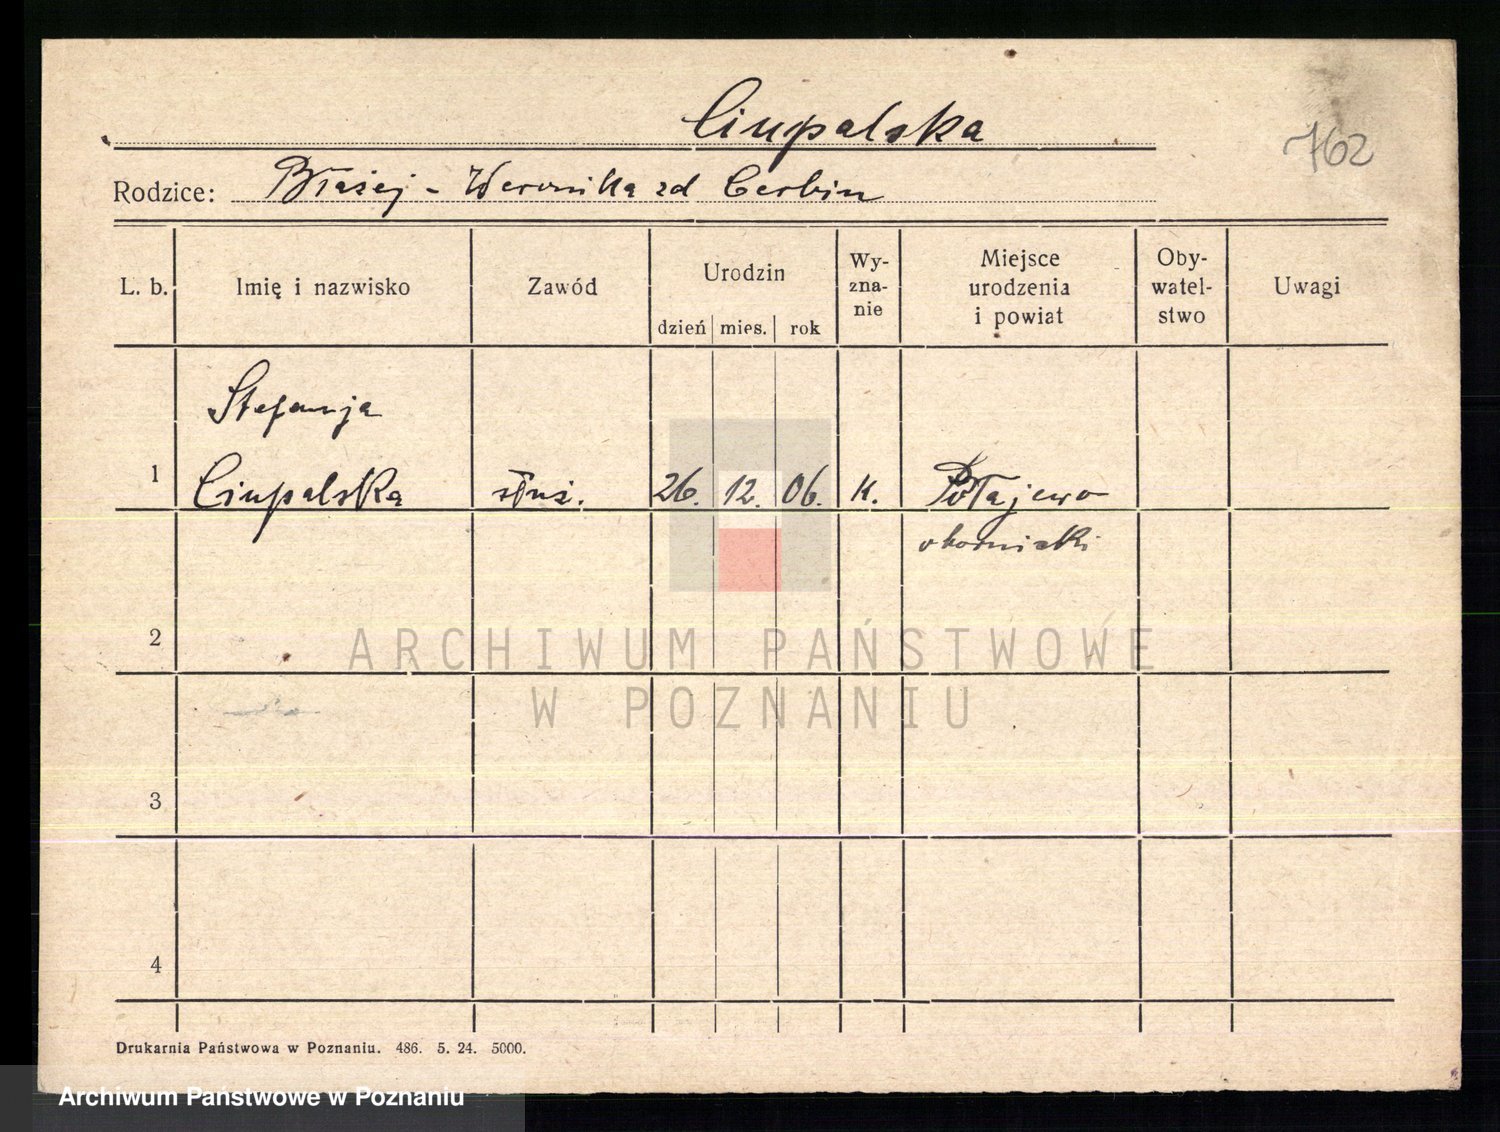 Ciupalska
762
Rodzice: Błażej - Weronika zd Cerbin
L. b. Imię i nazwisko Zawód Urodzin dzień mies. rok Wy-zna-nie Miejsce urodzenia i powiat Oby-watel-stwo Uwagi
Stefanja
1 Ciupalska służ. 26. 12. 06. K. Połajewo
obornicki
2
ARCHIWUM PAŃSTWOWE
W POZNANIU
3
4
Drukarnia Państwowa w Poznaniu. 486. 5. 24. 5000.
Archiwum Państwowe w Poznaniu